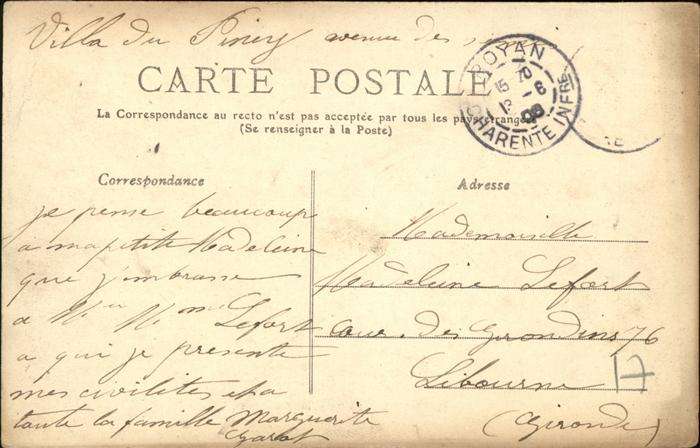 Villa du Piney avenue des
CARTE POSTALE
ROYAN
15 70
12 -6
08
CHARENTE INFRE
La Correspondance au recto n'est pas acceptée par tous les pays étrangers
(Se renseigner à la Poste)
Correspondance
je pense beaucoup
a ma petite Madeleine
que j'embrasse
a Mr Mme Lefort
a qui je présente
mes civilités et a
toute la famille Marguerite
Adresse
Mademoiselle
Madeleine Lefort
Cour. des Girondins 76
Libourne
(Gironde)